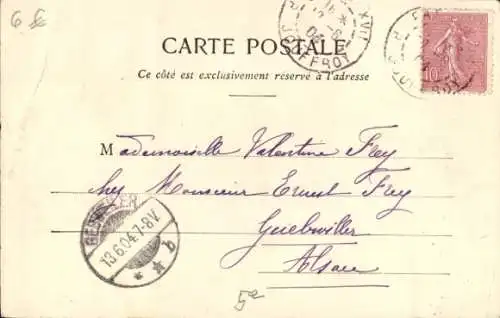 6 £
CARTE POSTALE
Ce côté est exclusivement réservé à l'adresse
XVII
JOUFFROY
10
Mademoiselle Valentine Frey
chez Monsieur Ernest Frey
Guebwiller
Alsace
GEBWEILER
13.6.04.7-8V.
5e